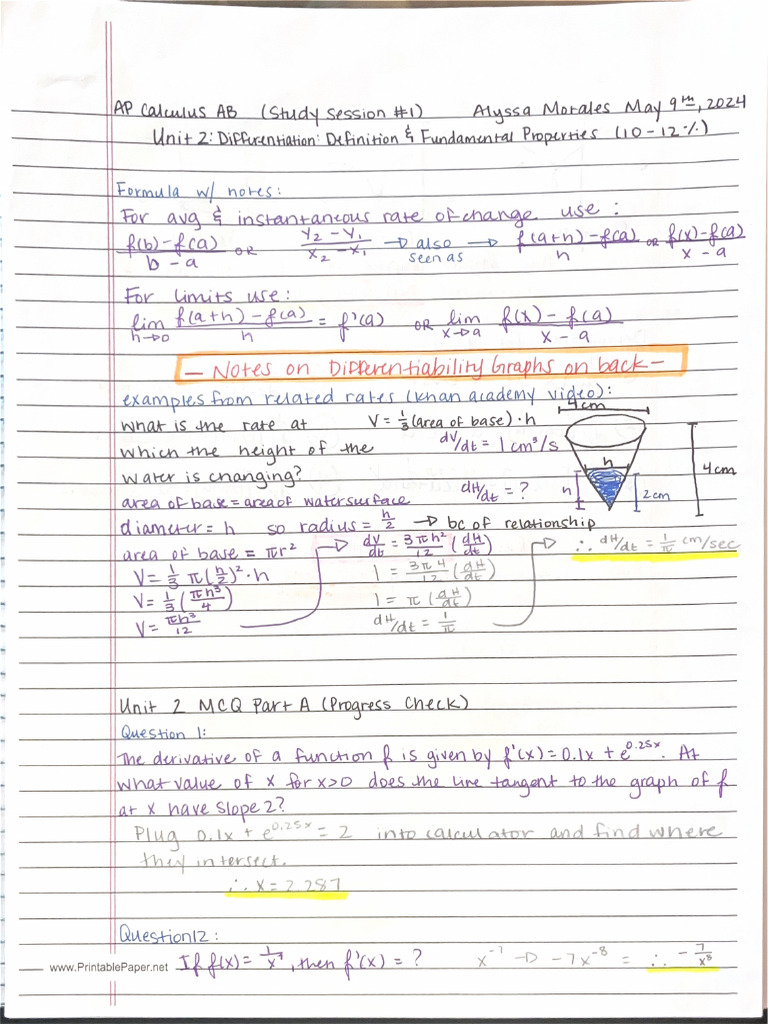 AP Calculus AB (Study Session #1) Alyssa Morales May 9th, 2024
Unit 2: Differentiation: Definition & Fundamental Properties (10-12%)
Formula w/ notes:
For avg & instantaneous rate of change use:
f(b)-f(a)/b-a OR Y₂-Y₁/X₂-X₁ → also seen as → f(a+h)-f(a)/h OR f(x)-f(a)/x-a
For limits use:
lim h→0 f(a+h)-f(a)/h = f'(a) OR lim x→a f(x)-f(a)/x-a
- Notes on Differentiability Graphs on back -
examples from related rates (khan academy video):
4cm
What is the rate at V=⅓(area of base)·h
which the height of the dV/dt = 1 cm³/s
h
4cm
water is changing?
h
2cm
area of base = area of water surface dH/dt = ?
diameter = h so radius = h/2 → bc of relationship
area of base = πr² → dV/dt = 3πh²/12 (dH/dt) → ∴ dH/dt = 1/π cm/sec
V=⅓ π(h/2)²·h 1 = 3π4/12 (dH/dt)
V=⅓(πh³/4) 1 = π(dH/dt)
V=πh³/12 dH/dt = 1/π
Unit 2 MCQ Part A (Progress Check)
Question 1:
The derivative of a function f is given by f'(x)=0.1x + e^0.25x. At
what value of x for x>0 does the line tangent to the graph of f
at x have slope 2?
Plug 0.1x + e^0.25x = 2 into calculator and find where
they intersect.
∴ x = 2.287
Question 12:
www.PrintablePaper.net If f(x)= 1/x⁷, then f'(x) = ? x⁻⁷ → -7x⁻⁸ = ∴ -7/x⁸